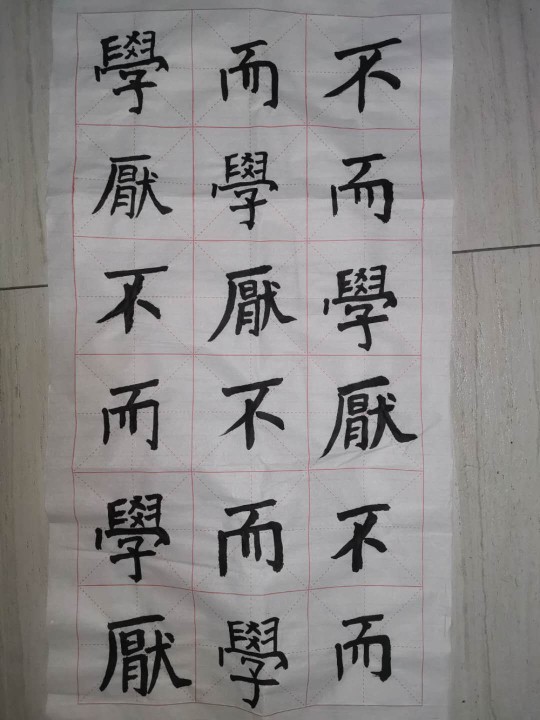 學而不
厭學而
不厭學
而不厭
學而不
厭學而